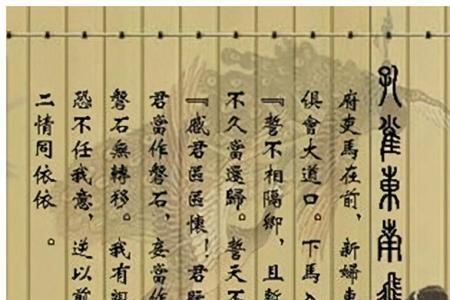 孔雀東南飛
府吏馬在前，新婦車
俱會大道口。下馬入
『誓不相隔卿，且暫
不久當還歸。誓天不
『感君區區懷！君既
君當作磐石，妾當作
磐石無轉移。我有親
恐不任我意，逆以前
二情同依依。